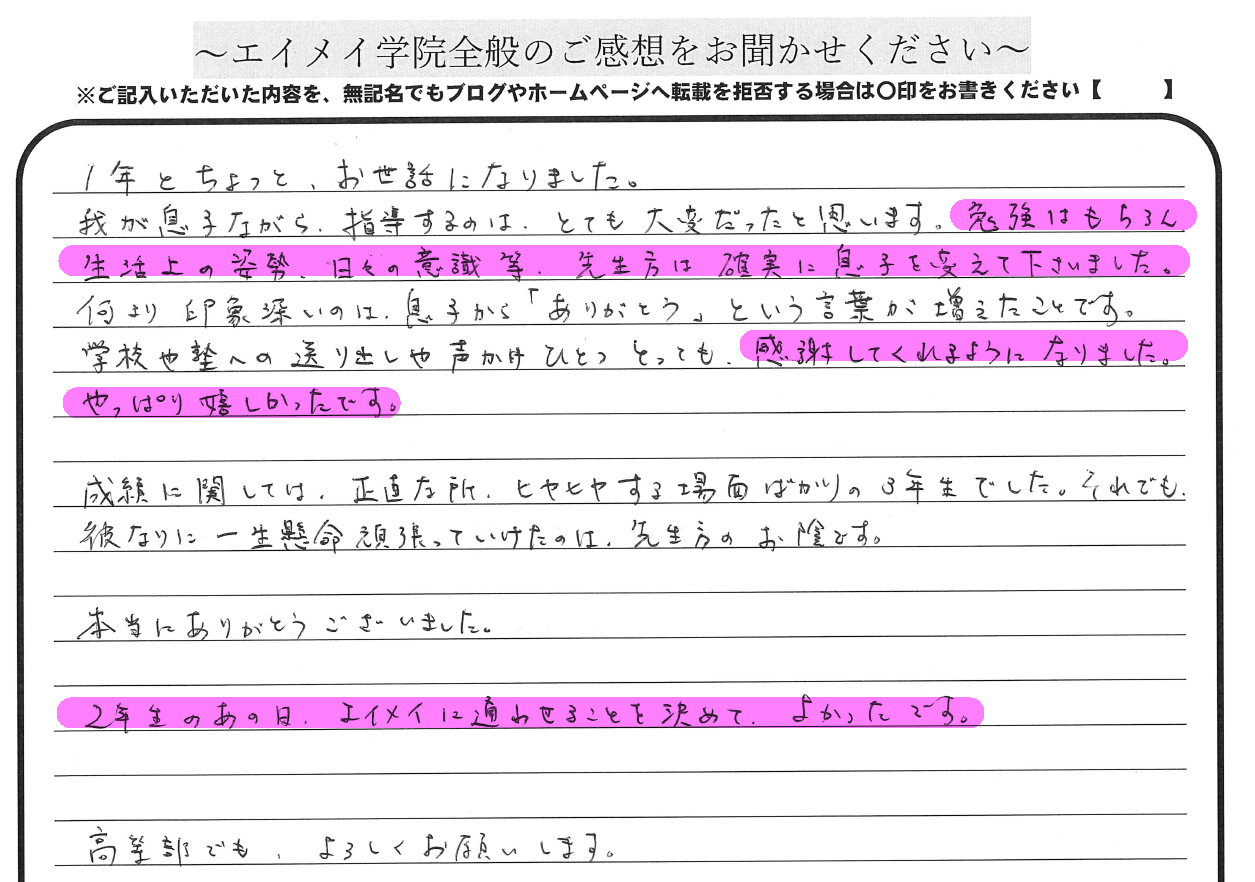 ～エイメイ学院全般のご感想をお聞かせください～
※ご記入いただいた内容を、無記名でもブログやホームページへ転載を拒否する場合は〇印をお書きください【　　　】
1年とちょっと、お世話になりました。
我が息子ながら、指導するのは、とても大変だったと思います。勉強はもちろん
生活上の姿勢、日々の意識等、先生方は確実に息子を変えて下さいました。
何より印象深いのは、息子から「ありがとう」という言葉が増えたことです。
学校や塾への送り出しや声かけひとつとっても、感謝してくれるようになりました。
やっぱり嬉しかったです。
成績に関しては、正直な所、ヒヤヒヤする場面ばかりの3年生でした。それでも、
彼なりに一生懸命頑張っていけたのは、先生方のお陰です。
本当にありがとうございました。
2年生のあの日、エイメイに通わせることを決めて、よかったです。
高等部でも、よろしくお願いします。